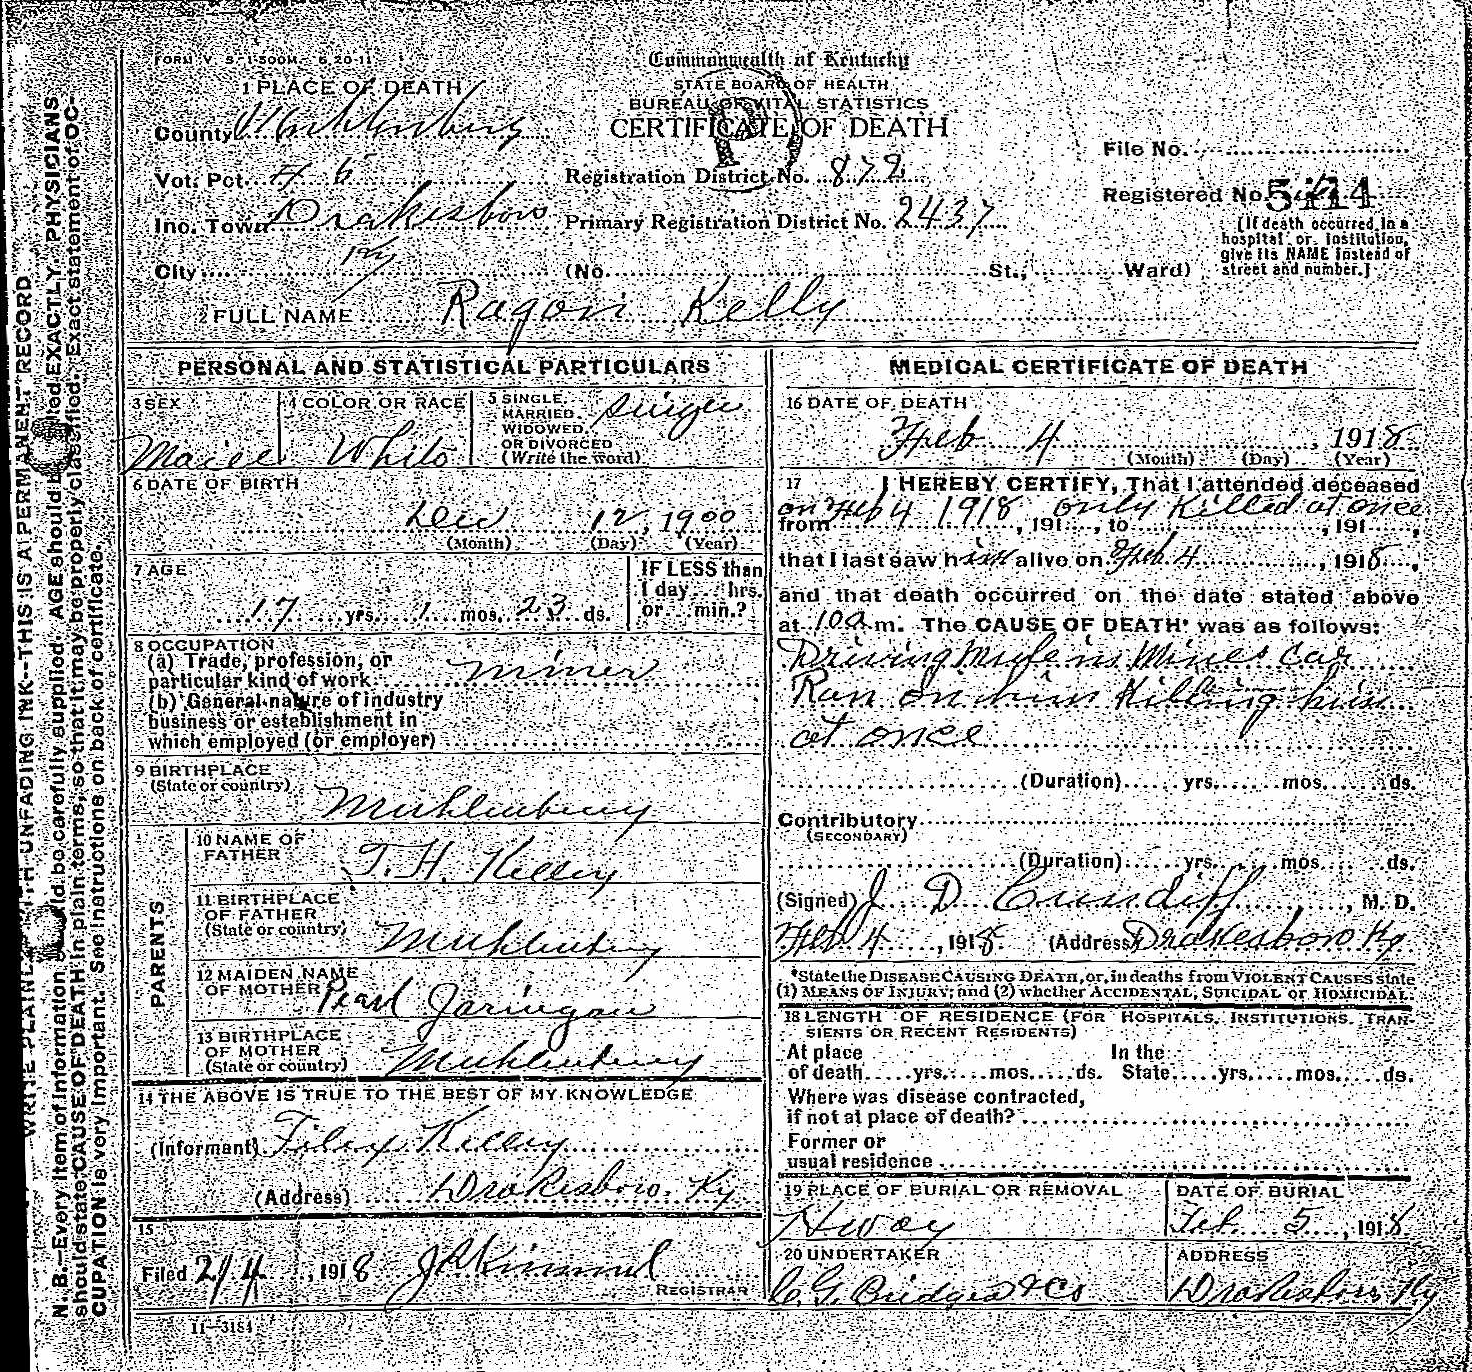 FORM V. S. 1-500M- 6-20-11
Commonwealth of Kentucky
STATE BOARD OF HEALTH
BUREAU OF VITAL STATISTICS
CERTIFICATE OF DEATH
1 PLACE OF DEATH
County Muhlenburg
Vot. Pct. # 6
Inc. Town Drakesboro
City
Registration District No. 879
Primary Registration District No. 2437
(No. St., Ward)
File No.
Registered No. 5414
[If death occurred in a
hospital or institution,
give its NAME instead of
street and number.]
2 FULL NAME Ragon Kelly
PERSONAL AND STATISTICAL PARTICULARS
3 SEX
Male
4 COLOR OR RACE
White
5 SINGLE,
MARRIED,
WIDOWED,
OR DIVORCED
(Write the word)
Single
6 DATE OF BIRTH
Dec 12, 1900
(Month) (Day) (Year)
7 AGE
17 yrs. 1 mos. 23 ds.
IF LESS than
1 day hrs.
or min.?
8 OCCUPATION
(a) Trade, profession, or
particular kind of work miner
(b) General nature of industry
business or establishment in
which employed (or employer)
9 BIRTHPLACE
(State or country)
Muhlenburg
PARENTS
10 NAME OF
FATHER
T. H. Kelley
11 BIRTHPLACE
OF FATHER
(State or country)
Muhlenburg
12 MAIDEN NAME
OF MOTHER
Pearl Jaringan
13 BIRTHPLACE
OF MOTHER
(State or country)
Muhlenburg
14 THE ABOVE IS TRUE TO THE BEST OF MY KNOWLEDGE
(Informant) Kelley
(Address) Drakesboro, Ky
15
Filed 2/4, 1918 Kimmel
REGISTRAR
11-3184
MEDICAL CERTIFICATE OF DEATH
16 DATE OF DEATH
Feb 4, 1918
(Month) (Day) (Year)
17 I HEREBY CERTIFY, That I attended deceased
on Feb 4 1918 only Killed at once
from , 191 , to , 191 ,
that I last saw him alive on Feb 4, 1918,
and that death occurred on the date stated above
at 10a m. The CAUSE OF DEATH* was as follows:
Driving Mule in Mines Car
Ran on him Killing him
at once
(Duration) yrs. mos. ds.
Contributory
(SECONDARY)
(Duration) yrs. mos. ds.
(Signed) J. D. Cundiff, M. D.
Feb 4, 1918. (Address) Drakesboro Ky
*State the DISEASE CAUSING DEATH, or, in deaths from VIOLENT CAUSES state
(1) MEANS OF INJURY; and (2) whether ACCIDENTAL, SUICIDAL or HOMICIDAL.
18 LENGTH OF RESIDENCE (FOR HOSPITALS, INSTITUTIONS, TRAN-
SIENTS OR RECENT RESIDENTS)
At place In the
of death yrs. mos. ds. State yrs. mos. ds.
Where was disease contracted,
if not at place of death?
Former or
usual residence
19 PLACE OF BURIAL OR REMOVAL
DATE OF BURIAL
Feb. 5, 1918
20 UNDERTAKER
C. G. Bridges & Co
ADDRESS
Drakesboro Ky
N. B.—Every item of information should be carefully supplied. AGE should be stated EXACTLY. PHYSICIANS
should state CAUSE OF DEATH in plain terms, so that it may be properly classified. Exact statement of OC-
CUPATION is very important. See instructions on back of certificate.
WRITE PLAINLY WITH UNFADING INK—THIS IS A PERMANENT RECORD